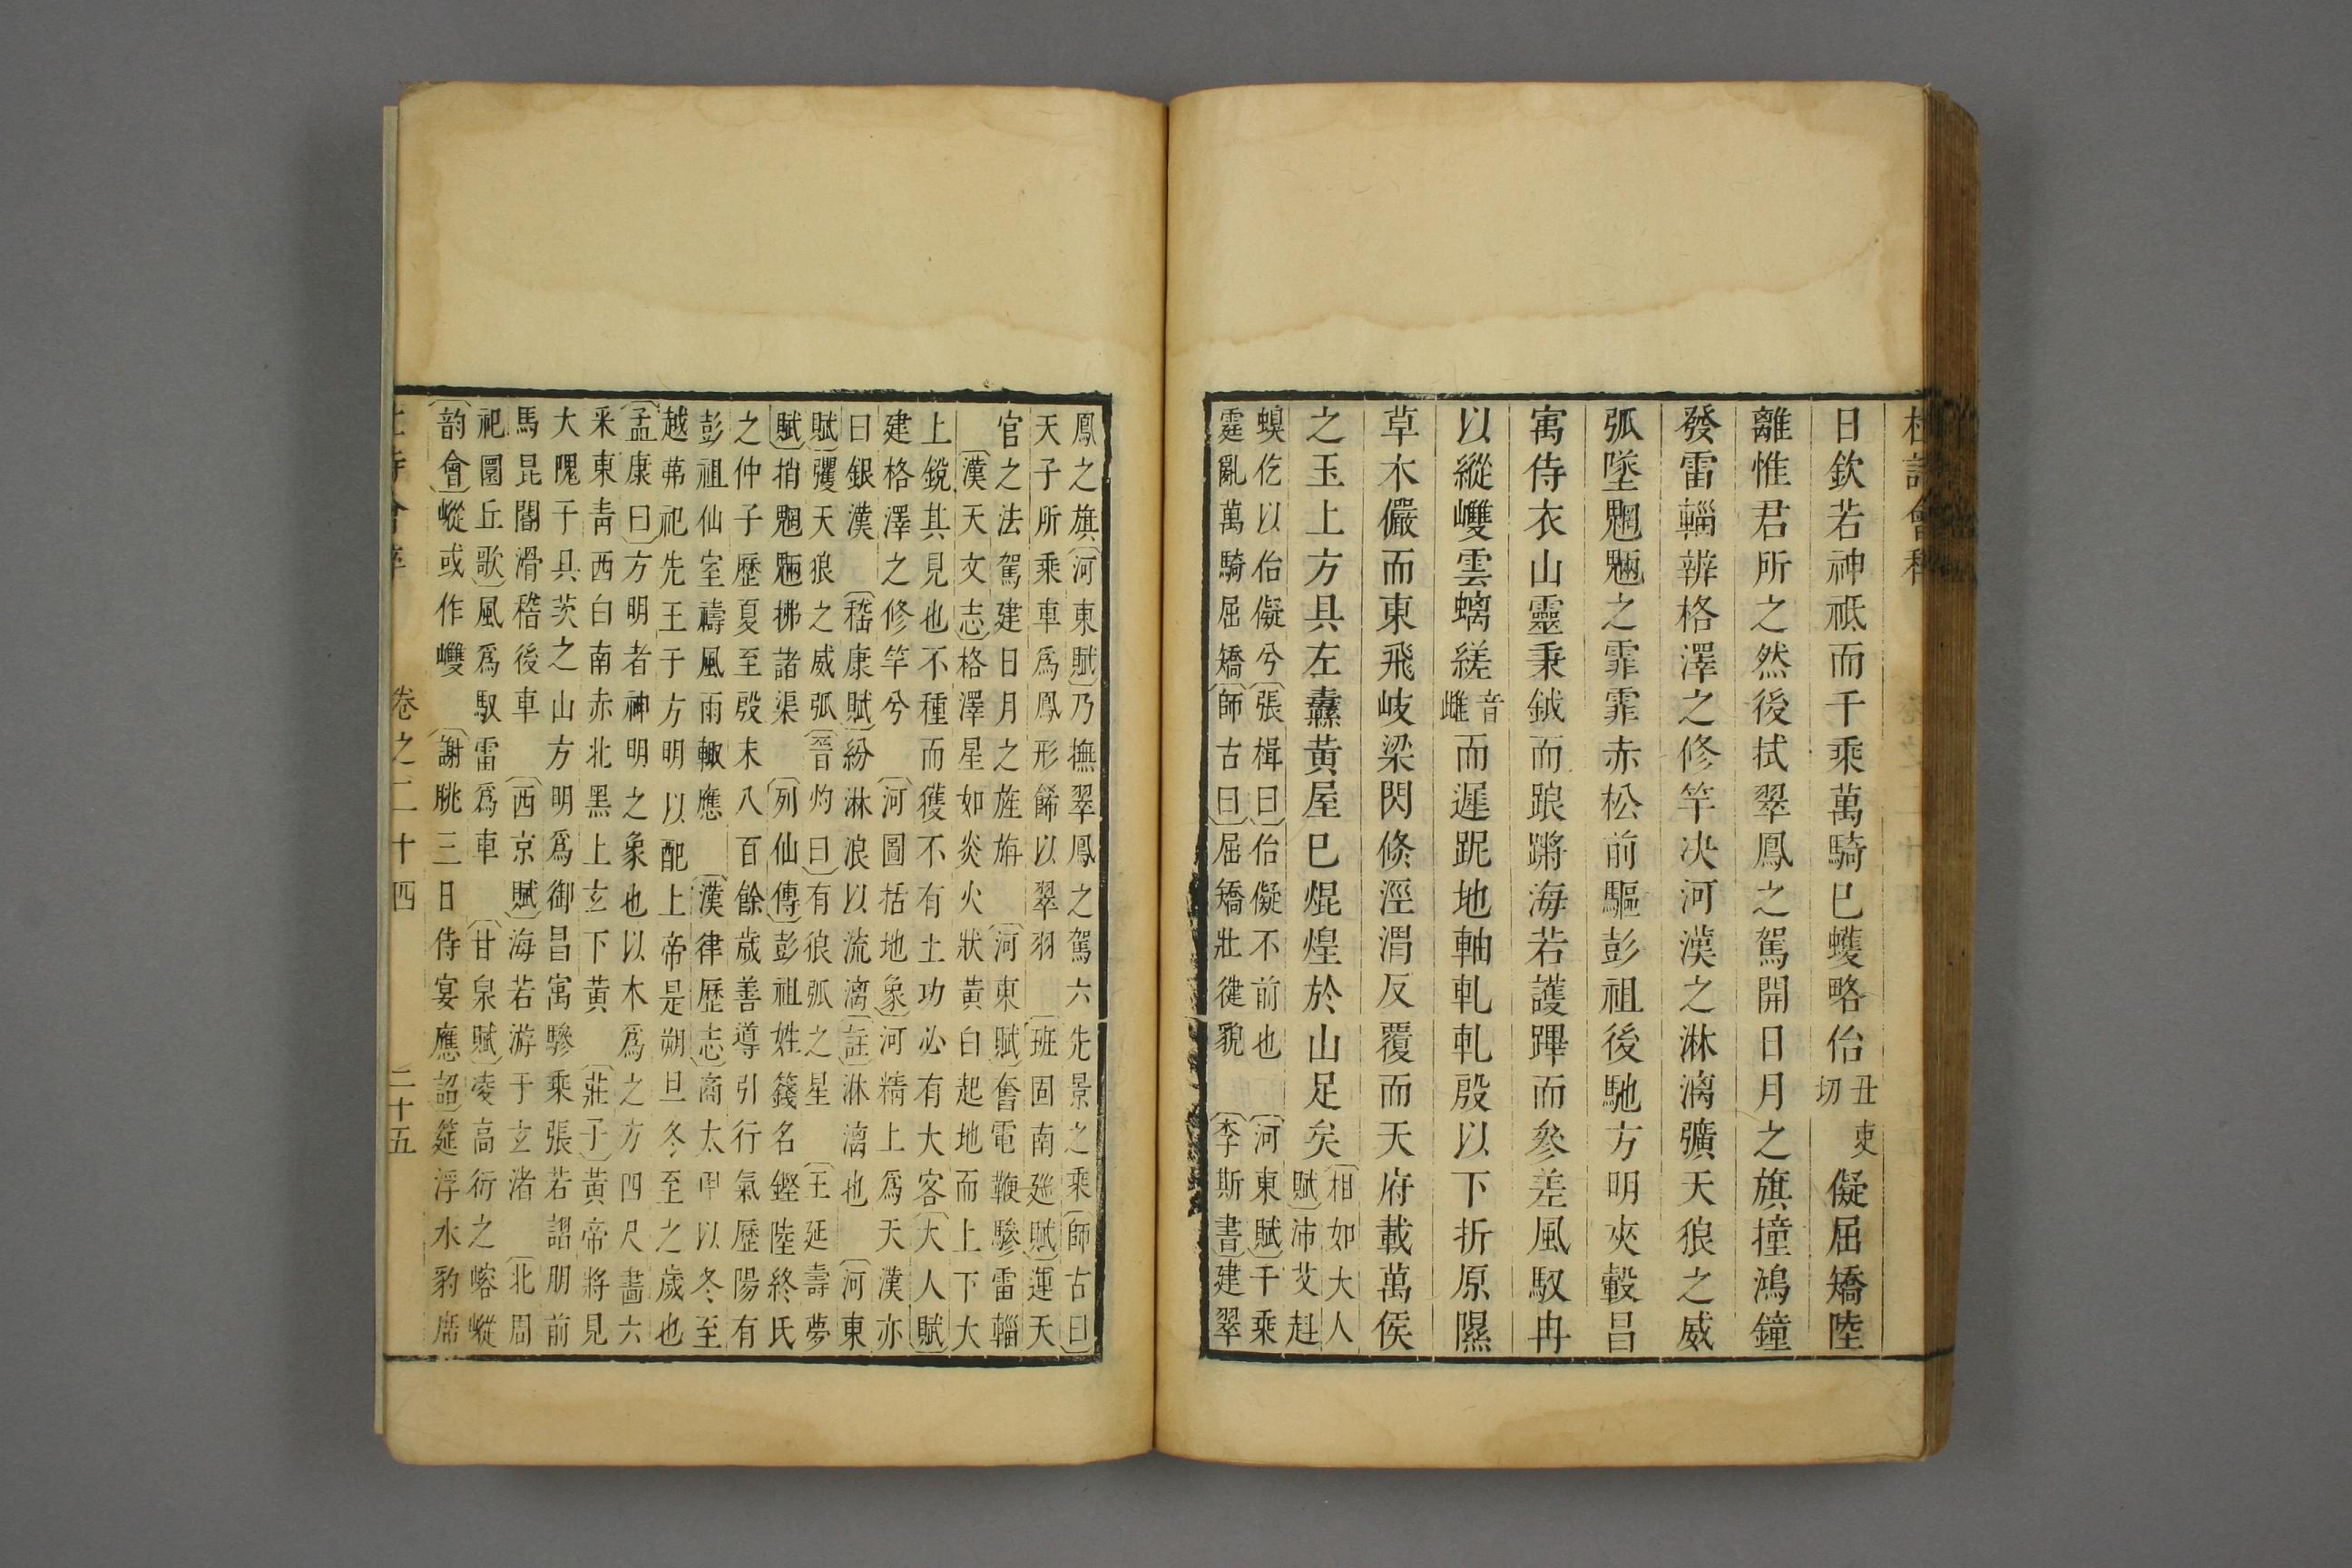 杜詩會稡
日欽若神祗而千乘萬騎已蠖略佁丑吏切儗屈矯陸
離惟君所之然後拭翠鳳之駕開日月之旗撞鴻鐘
發雷輜辨格澤之修竿决河漢之淋漓彍天狼之威
弧墜魍魎之霏霏赤松前驅彭祖後馳方明夾轂昌
寓侍衣山靈秉鉞而踉蹡海若護蹕而參差風馭冉
以縱㠉雲螭縒音雌而遲跜地軸軋軋殷以下折原隰
草木儼而東飛岐梁閃倏涇渭反覆而天府載萬侯
之玉上方具左纛黃屋已焜煌於山足矣相如大人賦沛艾赳
螑仡以佁儗兮張楫曰佁儗不前也河東賦千乘
霆亂萬騎屈矯師古曰屈矯壯徤貌李斯書建翠
鳳之旗河東賦乃撫翠鳳之駕六先景之乘師古曰
天子所乘車爲鳳形餙以翠羽班固南廵賦運天
官之法駕建日月之旌旃河東賦奮電鞭驂雷輜
漢天文志格澤星如炎火狀黃白起地而上下大
上銳其見也不種而獲不有土功必有大客大人賦
建格澤之修竿兮河圖括地象河精上爲天漢亦
曰銀漢嵇康賦紛淋浪以流漓註淋漓也河東
賦彏天狼之威弧晉灼曰有狼弧之星王延壽夢
賦捎魍魎拂諸渠列仙傳彭祖姓籛名鏗陸終氏
之仲子歷夏至殷末八百餘歲善導引行氣歷陽有
彭祖仙室禱風雨輙應漢律歷志商太甲以冬至
越茀祀先王于方明以配上帝是朔旦冬至之歲也
孟康曰方明者神明之象也以木爲之方四尺畫六
采東青西白南赤北黑上玄下黃莊子黃帝將見
大隗于具茨之山方明爲御昌寓驂乘張若謵朋前
馬昆閽滑稽後車西京賦海若游于玄渚北周
祀圜丘歌風爲馭雷爲車甘泉賦凌高衍之嵱嵷
韵會嵷或作㠉謝朓三日侍宴應詔筵浮水豹席
杜詩會稡 卷之二十四 二十五